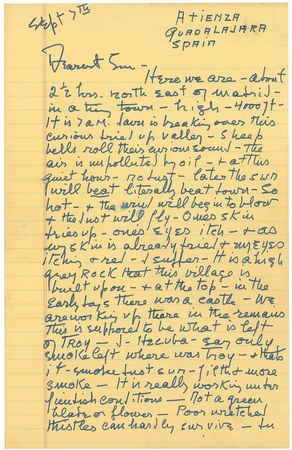 Sept 7TH
ATIENZA
GUADALAJARA
SPAIN
Dearest Em -
Here we are - about
2 1/2 hrs. north east of Madrid -
in a tiny town - high - 4000 ft -
It is 7 A.M. dawn is breaking over this
curious dried up valley - Sheep
bells roll their curious sound - The
air is unpolluted by oil - + at this
quiet hour - no dust - later the sun
will beat literally beat down - So
hot - + the wind will begin to blow
+ the dust will fly - Ones skin
dries up - ones eyes itch - + as
my skin is already fried + my eyes
itching + red - I suffer - It is a high
grey Rock that this village is
built upon - + at the top - in the
early days there was a castle - We
are working up there in the remains
this is supposed to be what is left
of Troy - I - Hecuba - say only
smoke left where was Troy - + that's
it - smoke dust sun - filth + more
smoke - It is really working under
fiendish conditions - Not a green
blade or flower - Poor wretched
thistles can hardly survive - In